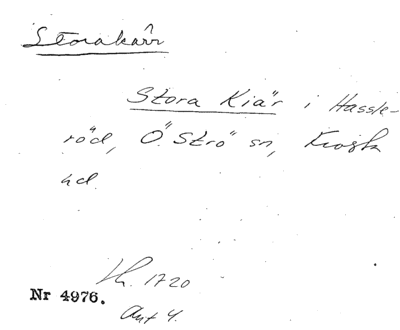 Storakärr
Stora Kiär i Hassle-
röd, Ö. Strö sn, Frosta
hd.
Lk. 1720
Nr 4976.
Ant 4.